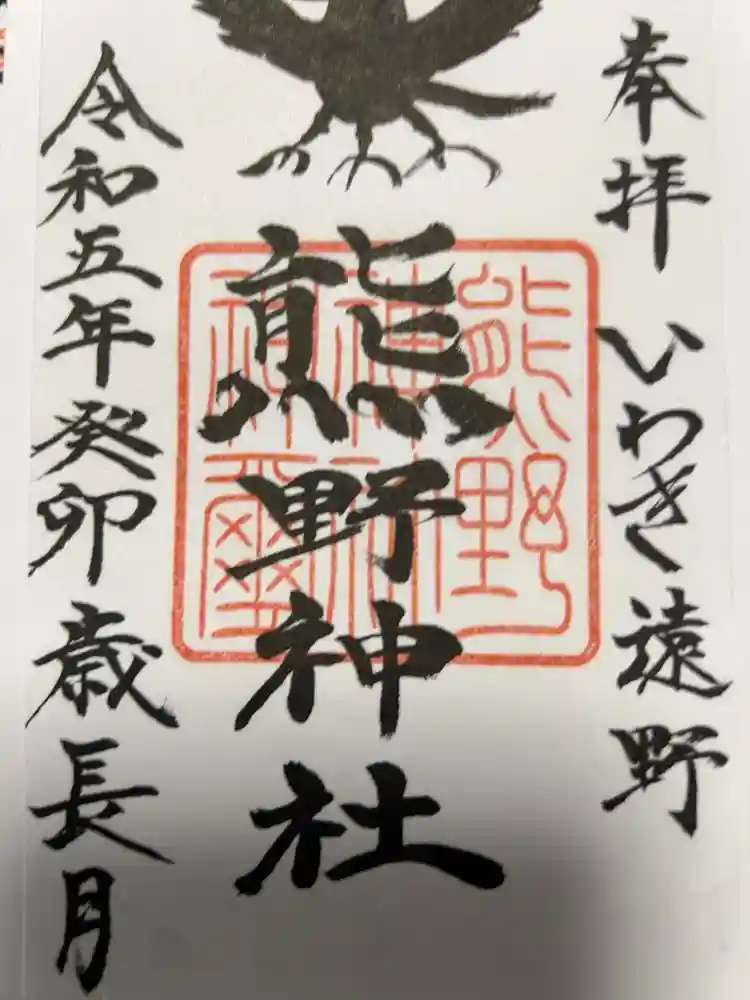 奉拝 いわき遠野
熊野神社
熊野
神社
神璽
令和五年癸卯歳長月